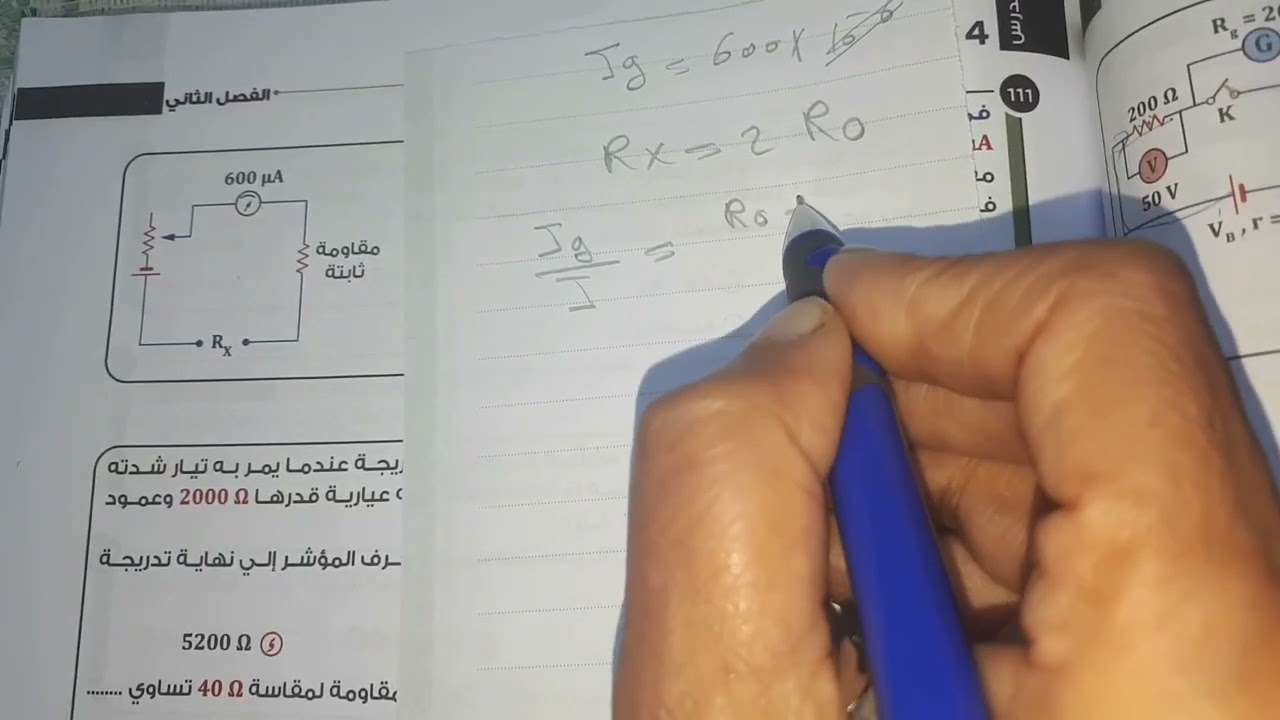 الفصل الثاني
600 µA
مقاومة
ثابتة
Rx
ـريجة عندما يمر به تيار شدته
عيارية قدرها 2000 Ω وعمود
ـرف المؤشر إلي نهاية تدريجة
5200 Ω
مقاومة لمقاسة 40 Ω تساوي ........
Ig = 600 x
Rx = 2 R0
Ig
I
=
R0 +
4
111
A
Rg = 20
G
200 Ω
K
V
50 V
VB , r =